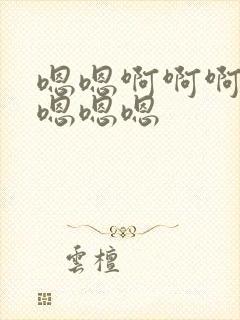 嗯嗯啊啊啊
嗯嗯嗯
雲檀